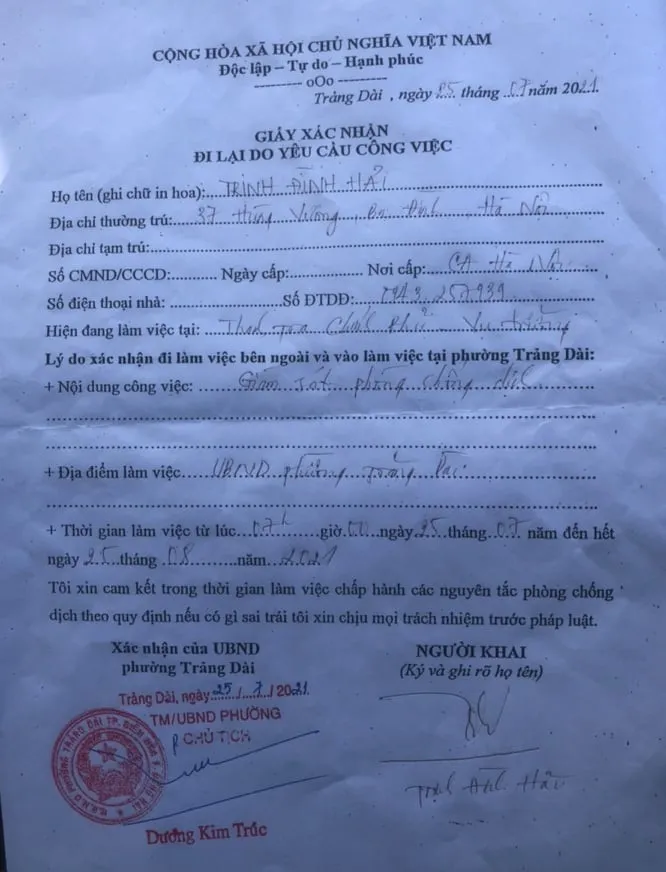 CỘNG HÒA XÃ HỘI CHỦ NGHĨA VIỆT NAM
Độc lập – Tự do – Hạnh phúc
---------- oOo ----------
Trảng Dài , ngày 25 tháng 07 năm 2021.
GIẤY XÁC NHẬN
ĐI LẠI DO YÊU CẦU CÔNG VIỆC
Họ tên (ghi chữ in hoa): TRỊNH ĐÌNH HẢI
Địa chỉ thường trú: 37 Hùng Vương, Ba Đình, Hà Nội
Địa chỉ tạm trú:
Số CMND/CCCD: Ngày cấp: Nơi cấp: CA Hà Nội
Số điện thoại nhà: Số ĐTDĐ:
Hiện đang làm việc tại: Chính Phủ
Lý do xác nhận đi làm việc bên ngoài và vào làm việc tại phường Trảng Dài:
+ Nội dung công việc: Giám sát phòng chống dịch
+ Địa điểm làm việc UBND phường Trảng Dài.
+ Thời gian làm việc từ lúc 07h giờ 00 ngày 25 tháng 07 năm đến hết
ngày 25 tháng 08 năm 2021
Tôi xin cam kết trong thời gian làm việc chấp hành các nguyên tắc phòng chống
dịch theo quy định nếu có gì sai trái tôi xin chịu mọi trách nhiệm trước pháp luật.
Xác nhận của UBND
phường Trảng Dài
Trảng Dài, ngày 25 / 7 / 2021
TM/UBND PHƯỜNG
CHỦ TỊCH
Dương Kim Trúc
NGƯỜI KHAI
(Ký và ghi rõ họ tên)
Trịnh Đình Hải